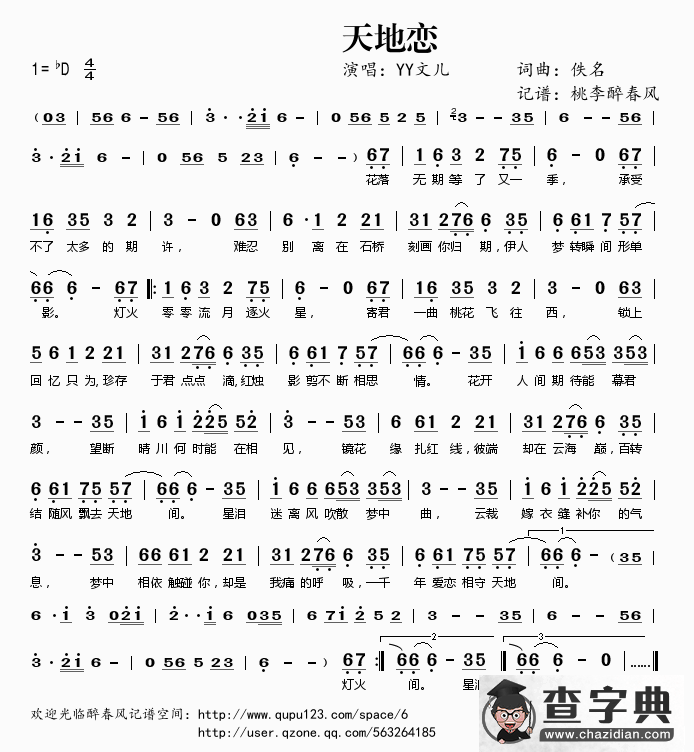 天地恋
1=♭D 4/4 演唱：YY文儿 词曲：佚名
记谱：桃李醉春风
(03 | 56 6 - 56 | 3 · 21 6 | 0 56 5 2 5 | 3 - - 35 | 6 - - 56 |
3 · 21 6 | 0 56 5 23 | 6 - - ) 67 | 1 6 3 2 75 | 6 - 0 67 |
花落 无期等了又一 季， 承受
16 35 3 2 | 3 - 0 63 | 6 · 1 2 21 | 31 276 6 35 | 6 61 7 57 |
不了 太多的期 许， 难忍 别离在石桥 刻画你归期，伊人 梦转瞬间形单
66 6 - 67 |: 1 6 3 2 75 | 6 - 0 67 | 16 35 3 2 | 3 - 0 35 |
影。 灯火 零零流月逐火 星， 寄君 一曲桃花飞往 西， 锁上
5 61 2 21 | 31 276 6 35 | 6 61 7 57 | 66 6 - 35 | 1 6 6 653 353 |
回忆只为，珍存 于君点点滴，红烛 影剪不断相思 情。 花开 人间期待能幕君
3 - - 35 | 1 6 1 225 52 | 3 - - 53 | 6 61 2 21 | 31 276 6 35 |
颜， 望断 晴川何时能在相 见， 镜花 缘扎红线，彼端 却在云海巅，百转
6 61 75 57 | 66 6 - 35 | 1 6 6 653 353 | 3 - - 35 | 1 6 1 225 52 |
结随风飘去天地 间。 星泪 迷离风吹散梦中 曲， 云裁 嫁衣缝补你的气
3 - - 53 | 66 61 2 21 | 31 276 6 35 | 6 61 75 57 | 1 66 6 - (35 |
息， 梦中 相依触碰你，却是 我痛的呼吸，一千 年爱恋相守天地 间。
6 · 1 3 021 | 2 · 1 6 035 | 6 71 2 5 2 | 3 - - - | 6 - - 56 |
3 · 21 6 | 0 56 5 23 | 6 - - ) 67 :| 2 66 6 - 35 :| 3 66 6 - 0 |......|
灯火 间。 星泪
欢迎光临醉春风记谱空间：http://www.qupu123.com/space/6
http://user.qzone.qq.com/563264185
查字典
www.chazidian.com